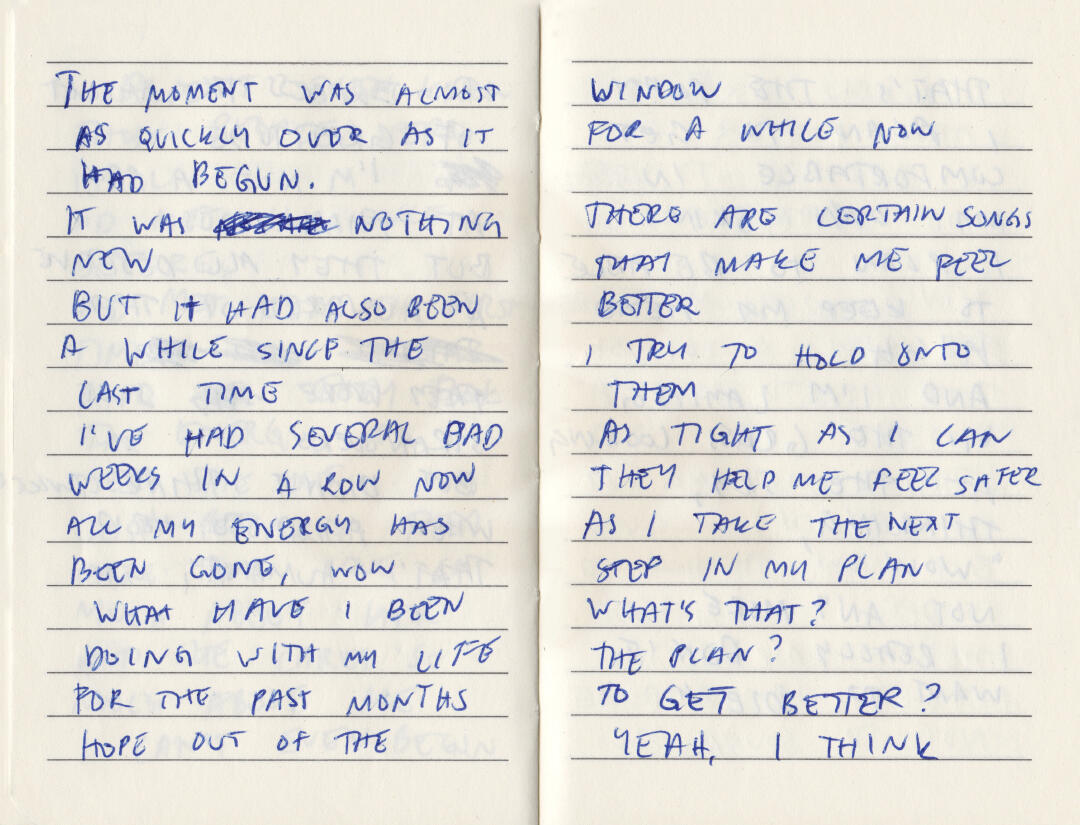 THE MOMENT WAS ALMOST
AS QUICKLY OVER AS IT
HAD BEGUN.
IT WAS NOTHING
NEW
BUT IT HAD ALSO BEEN
A WHILE SINCE THE
LAST TIME
I'VE HAD SEVERAL BAD
WEEKS IN A ROW NOW
ALL MY ENERGY HAS
BEEN GONE, NOW
WHAT HAVE I BEEN
DOING WITH MY LIFE
FOR THE PAST MONTHS
HOPE OUT OF THE
WINDOW
FOR A WHILE NOW
THERE ARE CERTAIN SONGS
THAT MAKE ME FEEL
BETTER
I TRY TO HOLD ONTO
THEM
AS TIGHT AS I CAN
THEY HELP ME FEEL SAFER
AS I TAKE THE NEXT
STEP IN MY PLAN
WHAT'S THAT?
THE PLAN?
TO GET BETTER?
YEAH, I THINK